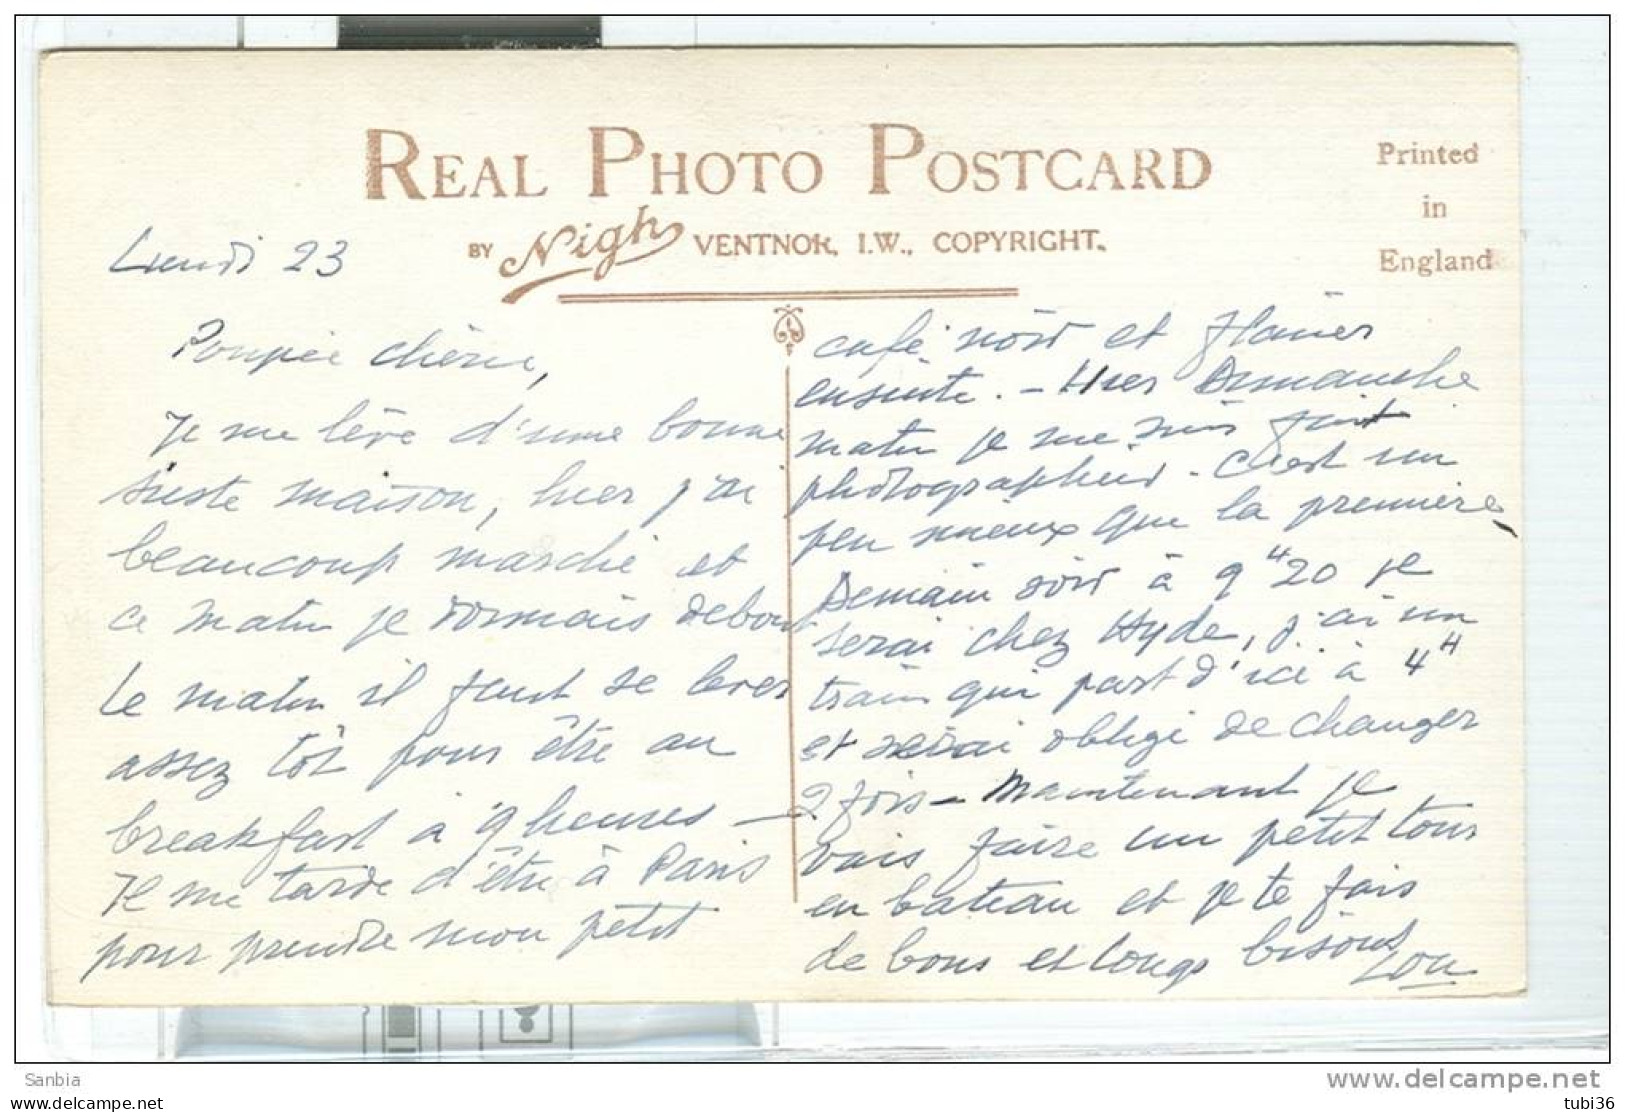 REAL PHOTO POSTCARD
BY Nigh VENTNOR, I.W., COPYRIGHT.
Printed
in
England
Lundi 23
Poupée chérie,
Je me lève d'une bonne
sieste maison, hier j'ai
beaucoup marché et
ce matin je dormais debout
Le matin il faut se lever
assez tôt pour être au
breakfast à 9 heures —
Il me tarde d'être à Paris
pour prendre mon petit
café noir et flâner
ensuite. - Hier Dimanche
matin je me suis fait
photographier - c'est un
peu mieux que la première
Demain soir à 9H20 je
serai chez Hyde, j'ai un
train qui part d'ici à 4H
et serai obligé de changer
2 fois - Maintenant je
vais faire un petit tour
en bateau et je te fais
de bons et longs bisous
Lou
Sanbia
www.delcampe.net
delcampe.net
tubi36